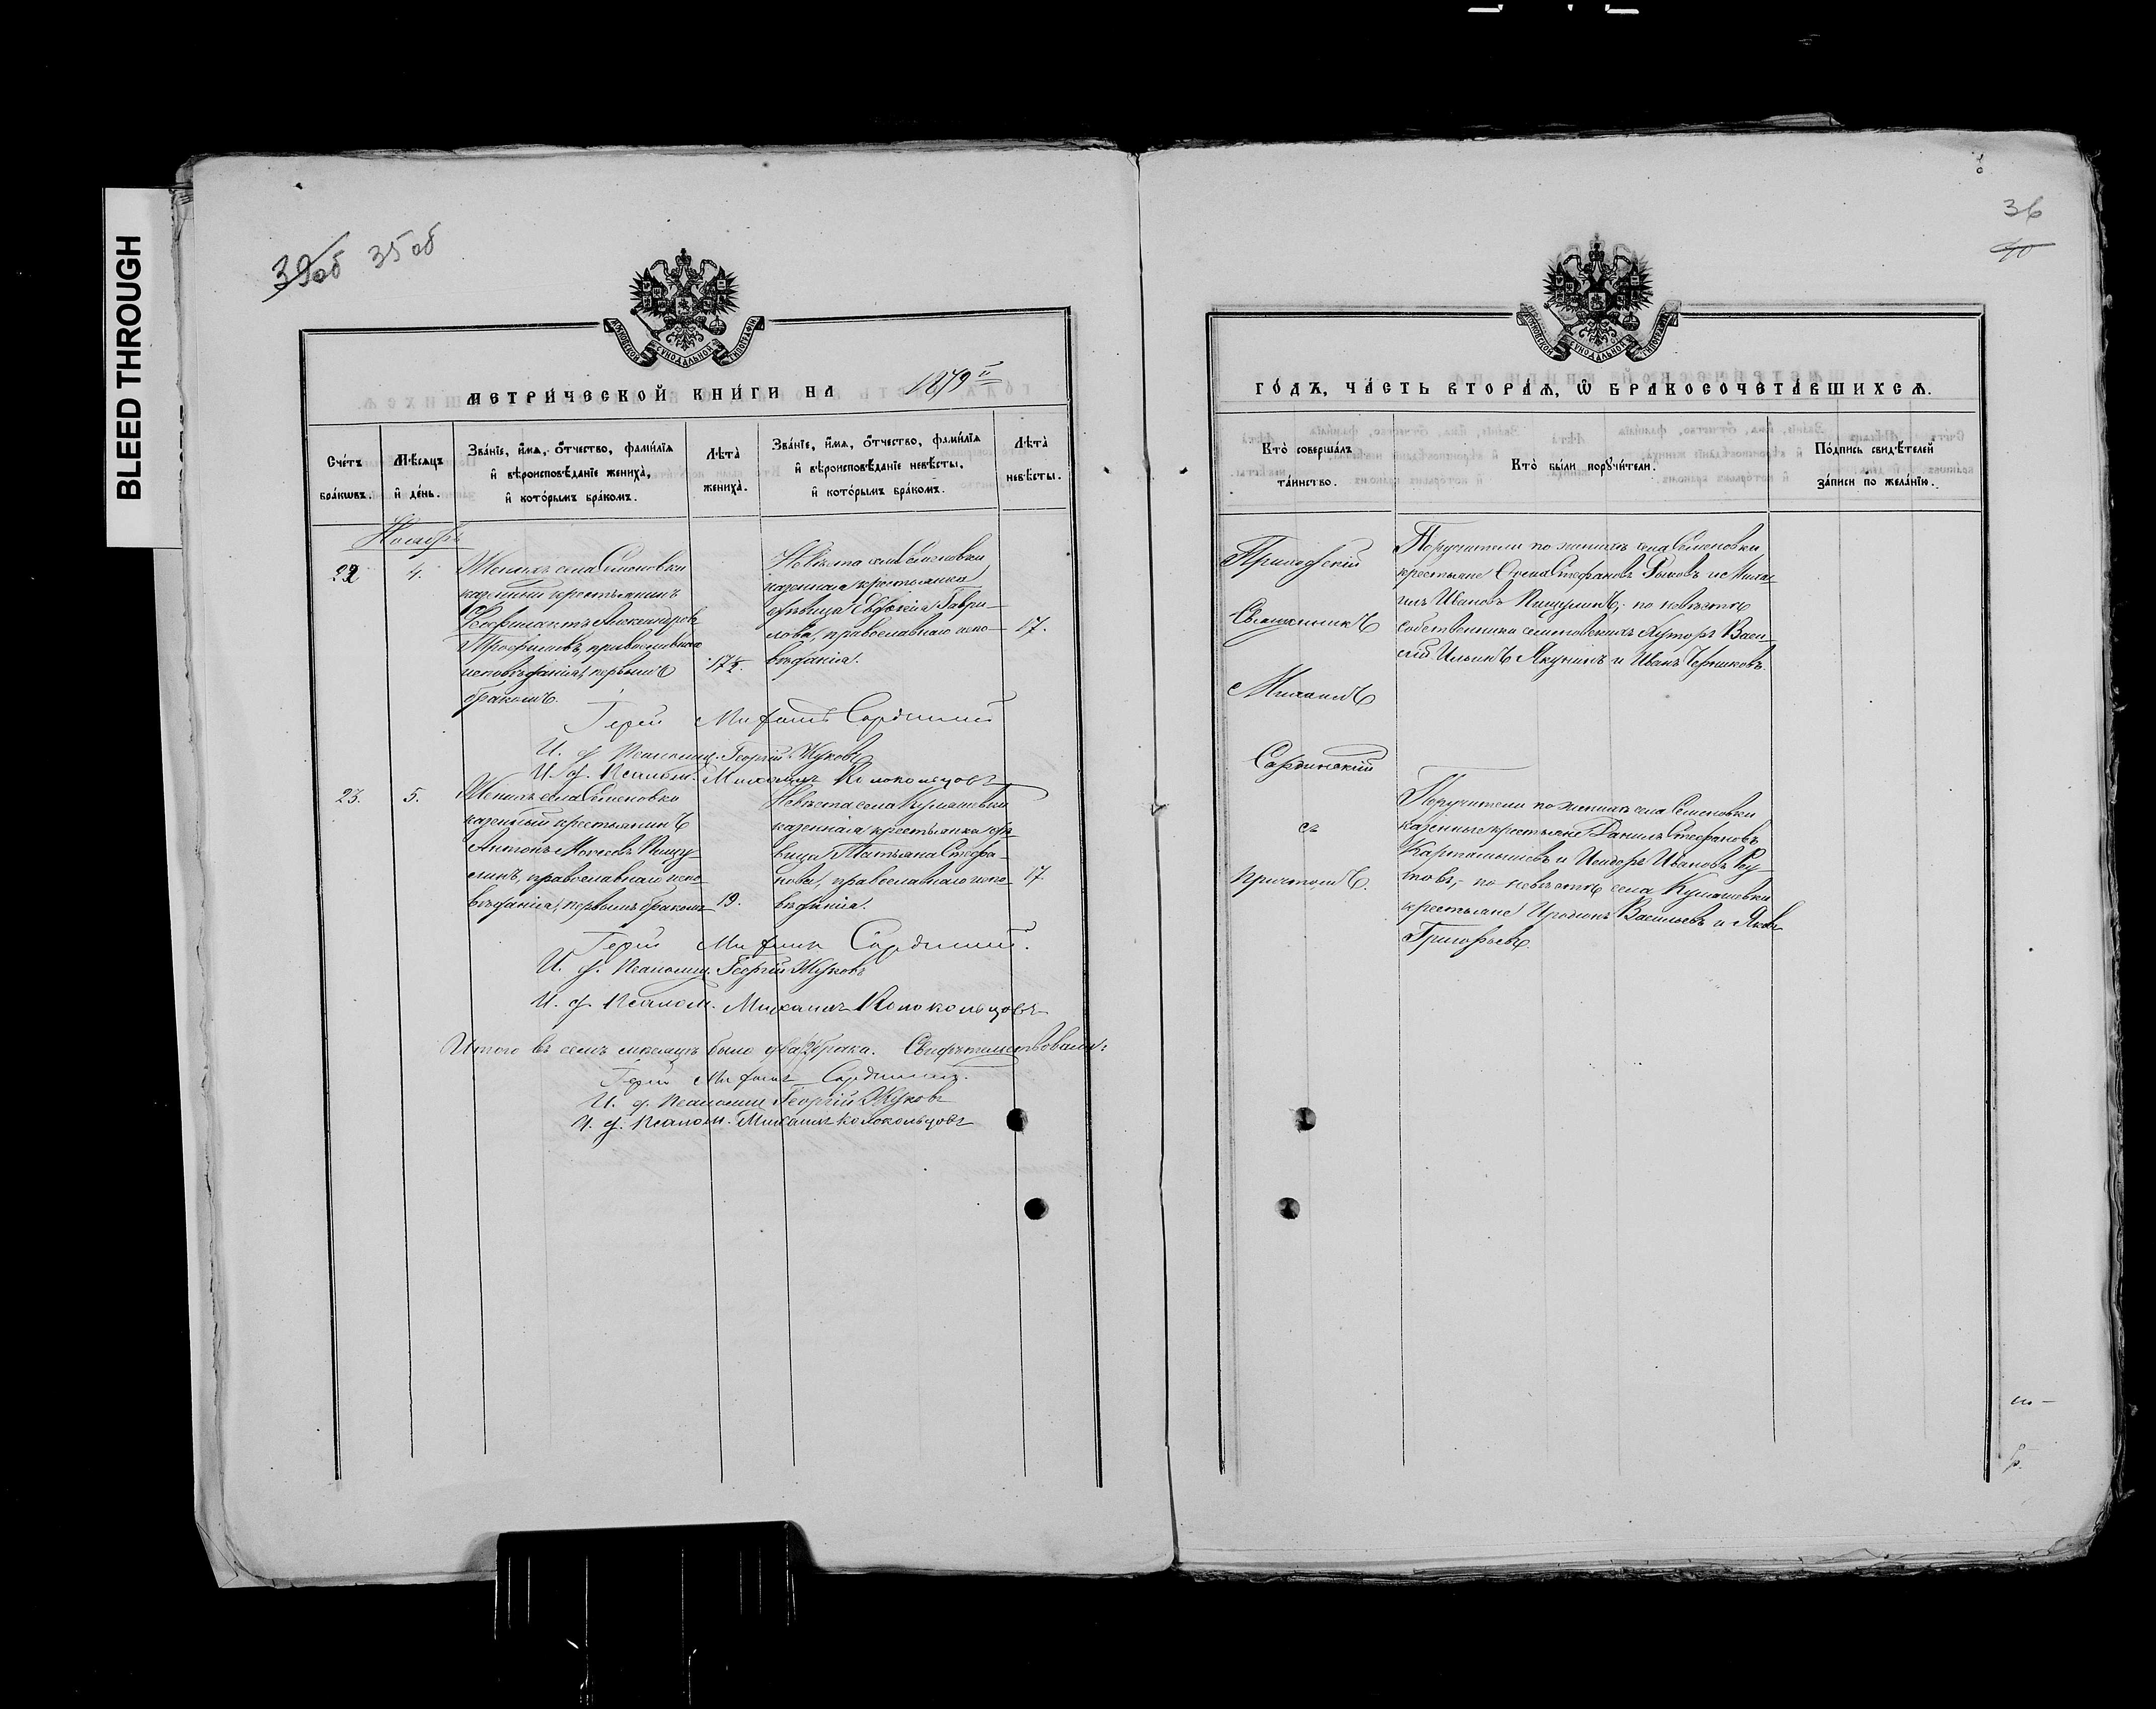 BLEED THROUGH
39об 35 об
МОСКОВСКОЙ СѴНОДАЛЬНОЙ ТИПОГРАФІИ
МЕТРИ́ЧЕСКОЙ КНИ́ГИ НА 1879
Сче́тъ бра́кѡвъ.
Мѣ́сяцъ и҆ де́нь.
Зва́нїе, и҆́мѧ, ѻ҆́тчество, фами́лїѧ
и҆ вѣроисповѣ́данїе жениха̀,
и҆ кото́рымъ бра́комъ.
Лѣ́та̀ жениха̀.
Зва́нїе, и҆́мѧ, ѻ҆́тчество, фами́лїѧ
и҆ вѣроисповѣ́данїе невѣ́сты,
и҆ кото́рымъ бра́комъ.
Лѣ́та̀ невѣ́сты.
Ноябрь
22
4.
Женихъ села Семеновки
казенный крестьянинъ
Александровъ
Трофимовъ, православнаго
исповѣданія, первымъ
бракомъ.
Невѣста села Семеновки
казенная крестьянка
дѣвица Евдокія Гаври-
лова, православнаго испо-
вѣданія.
17.
Іерей Сардинскій
И. д. Псаломщ. Георгій Жуковъ
И. д. Псалом. Михаилъ Колокольцовъ
23.
5.
Женихъ села Семеновки
казенный крестьянинъ
Антонъ Пищу-
линъ, православнаго испо-
вѣданія, первымъ бракомъ
19.
Невѣста села
казенная крестьянка дѣ-
вица Татьяна Стефа-
нова, православнаго испо-
вѣданія.
17
Іерей Сардинскій.
И. д. Псаломщ. Георгій Жуковъ
И. д. Псалом. Михаилъ Колокольцовъ
Итого въ семъ мѣсяцѣ было два /2/ брака. Свидѣтельствовали:
Іерей Сардинскій.
И. д. Псаломщ Георгій Жуковъ
И. д. Псалом. Михаилъ Колокольцовъ
36
40
МОСКОВСКОЙ СѴНОДАЛЬНОЙ ТИПОГРАФІИ
ГО́ДЪ, ЧА́СТЬ ВТОРА́Ѧ, Ѡ҆ БРАКОСОЧЕТА́ВШИХСѦ.
Кто̀ соверша́лъ
та́инство.
Кто̀ бы́ли порꙋчи́тели.
По́дпись свидѣ́телей
за́писи по жела́нїю.
Приходскій
Священникъ
Михаилъ
Сардинскій
съ
причтомъ.
Поручители по женихѣ села Семеновки
крестьяне Стефановъ и Миха-
илъ Ивановъ Пищулинъ; по невѣстѣ
собственники Хуторъ Васи-
лій Ильинъ Якунинъ и Иванъ Черниковъ.
Поручители по женихѣ села Семеновки
казенные крестьяне Данилъ Стефановъ
и Исидоръ Ивановъ
по невѣстѣ села
крестьяне Иродіонъ Васильевъ и Яковъ
Григорьевъ.